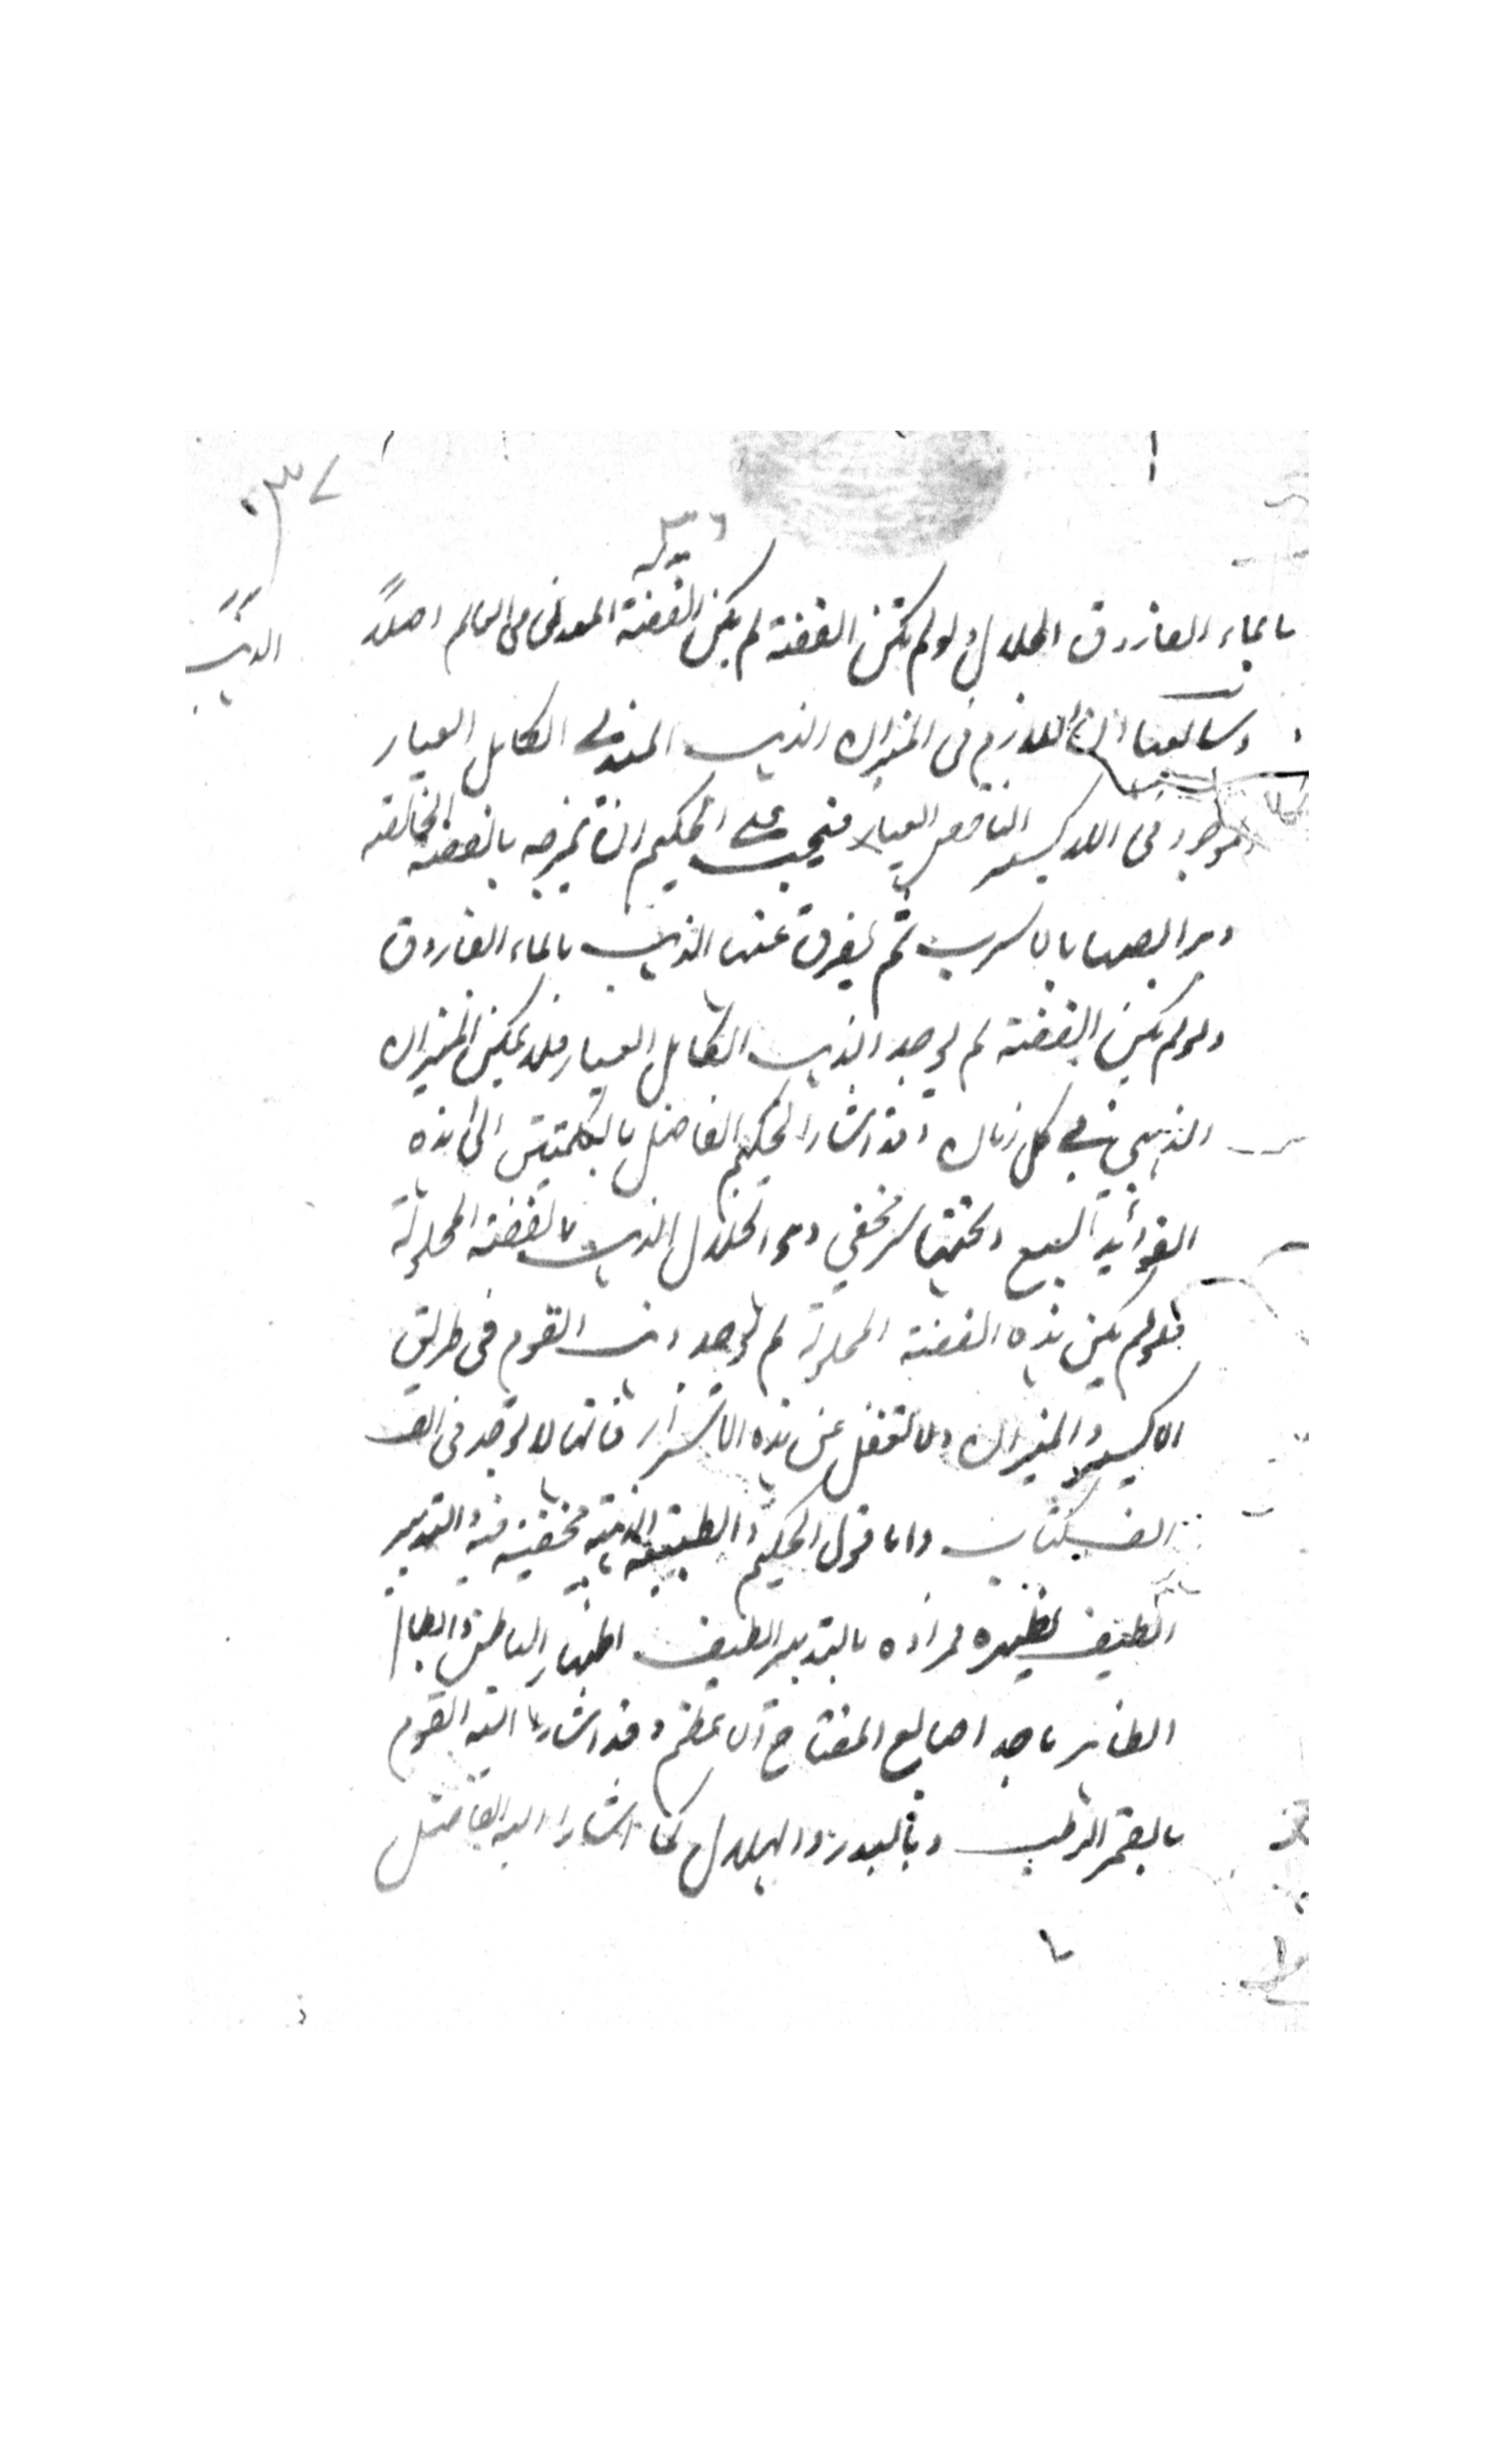 ٣٧
٣٦
بالماء الفاروق الحلال ولو لم تكن الفضة لم يكن الفضة المعدنى فى العالم اصلاً
الذهب
وسابعها ان اللازم فى الميزان الذهب المعدنى الكامل العيار
موجود فى الاكسير الناقص العيار فيجب على الحكيم ان يمزجه بالفضة الخالصة
ويرالبصها بالاسرب ثم يفرق عنها الذهب بالماء الفاروق
ولو لم يكن الفضة لم يوجد الذهب الكامل العيار فلا يمكن الميزان
الذهبى فى كل زمان وقد اشار الحكيم الفاضل بالكلمتين الى هذه
الفوائد السبع وتحتها سر مخفى وهو انحلال الذهب بالفضة المحلولة
فلو لم يكن هذه الفضة المحلولة لم يوجد ذهب القوم فى طريق
الاكسير والميزان ولا تغفل عن هذه الاسرار فانها لا توجد فى الف
الف كتاب واما قول الحكيم والطبيعة الذهبية مخفية فيه والتدبير
اللطيف يظهره مراده بالتدبير اللطيف اظهار الباطن وابطان
الظاهر باحد اصابع المفتاح الاعظم وقد اشار اليه القوم
بالقمر الرطب وبالبدر والهلال كما اشار اليه الفاضل